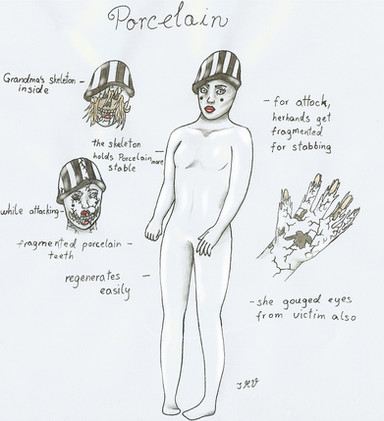 Porcelain
Grandma's skeleton
inside
the skeleton
holds Porcelain more
stable
while attacking
fragmented porcelain
teeth
regenerates
easily
for attack,
her hands get
fragmented
for stabbing
she gouged eyes
from victim also